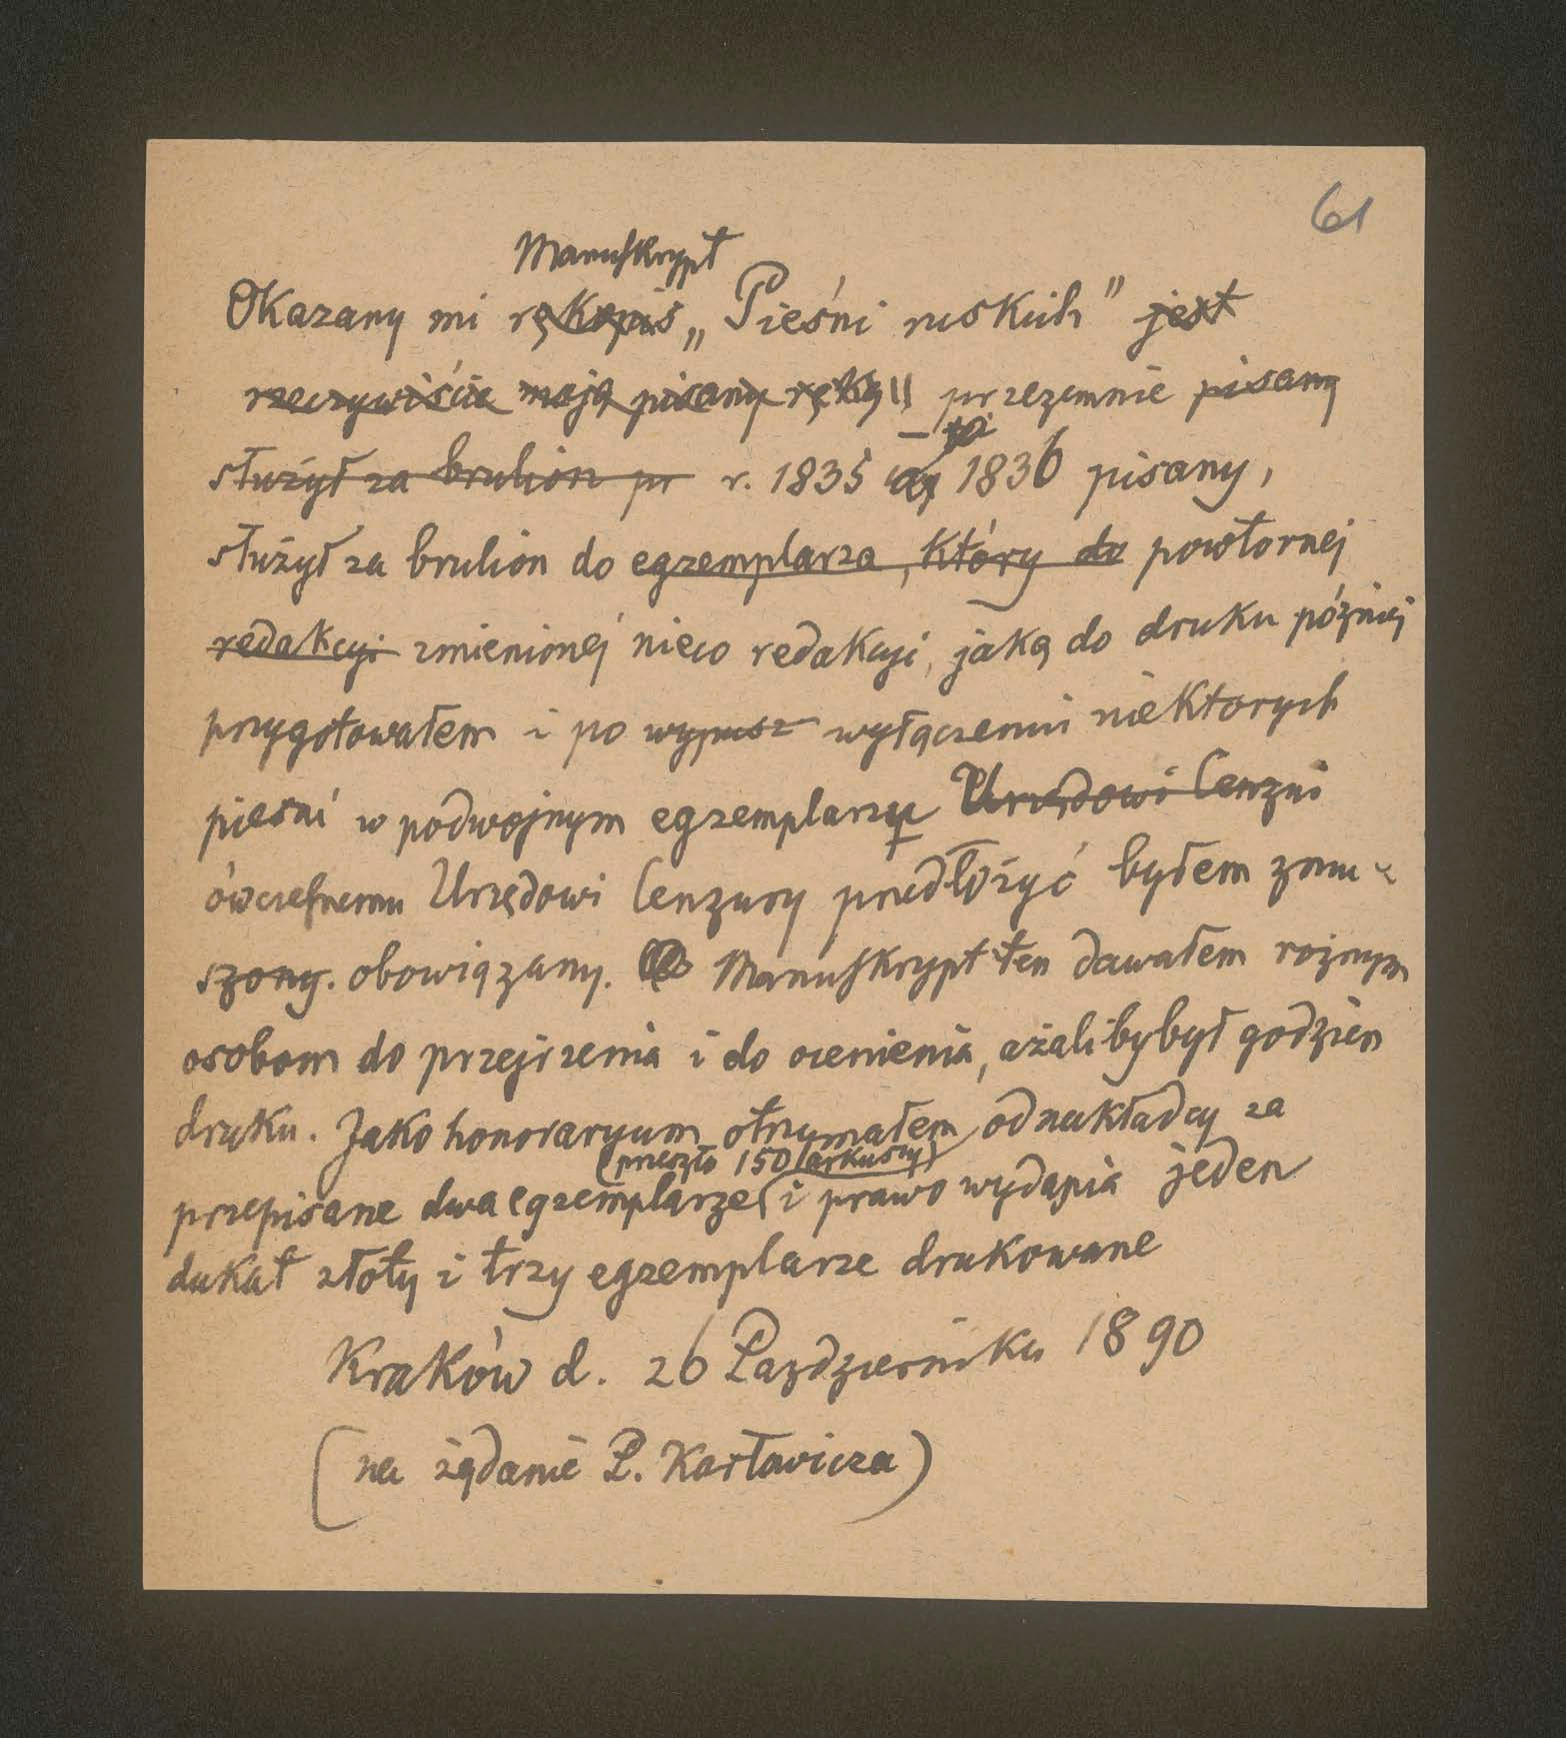 61
Manuskrypt
Okazany mi rękopis „Pieśni ruskich" jest
rzeczywiście moją pisany ręką przezemnie pisany
służył za brulion pr r. 1835 1836 pisany,
służył za brulion do egzemplarza, który do powtornej
redakcyi zmienionéj nieco redakcyi, jaką do druku późniéj
przygotowałem i po wypusz wyłączeniu niektorych
piesni w podwojnym egzemplarzu Urzędowi Cenzur
ówczesnemu Urzędowi Cenzury przedłożyć byłem zmu-
szony. obowiązany. Manuskrypt ten dawałem rożnym
osobom do przejrzenia i do ocenienia, ażaliby był godzien
druku. Jako honoraryum otrzymałem od nakładcy za
(przeszło 150 arkuszy)
przepisane dwa egzemplarze i prawo wydania jeden
dukat złoty i trzy egzemplarze drukowane
Kraków d. 26 Pazdziernika 1890
(na żądanie P. Karłowicza)